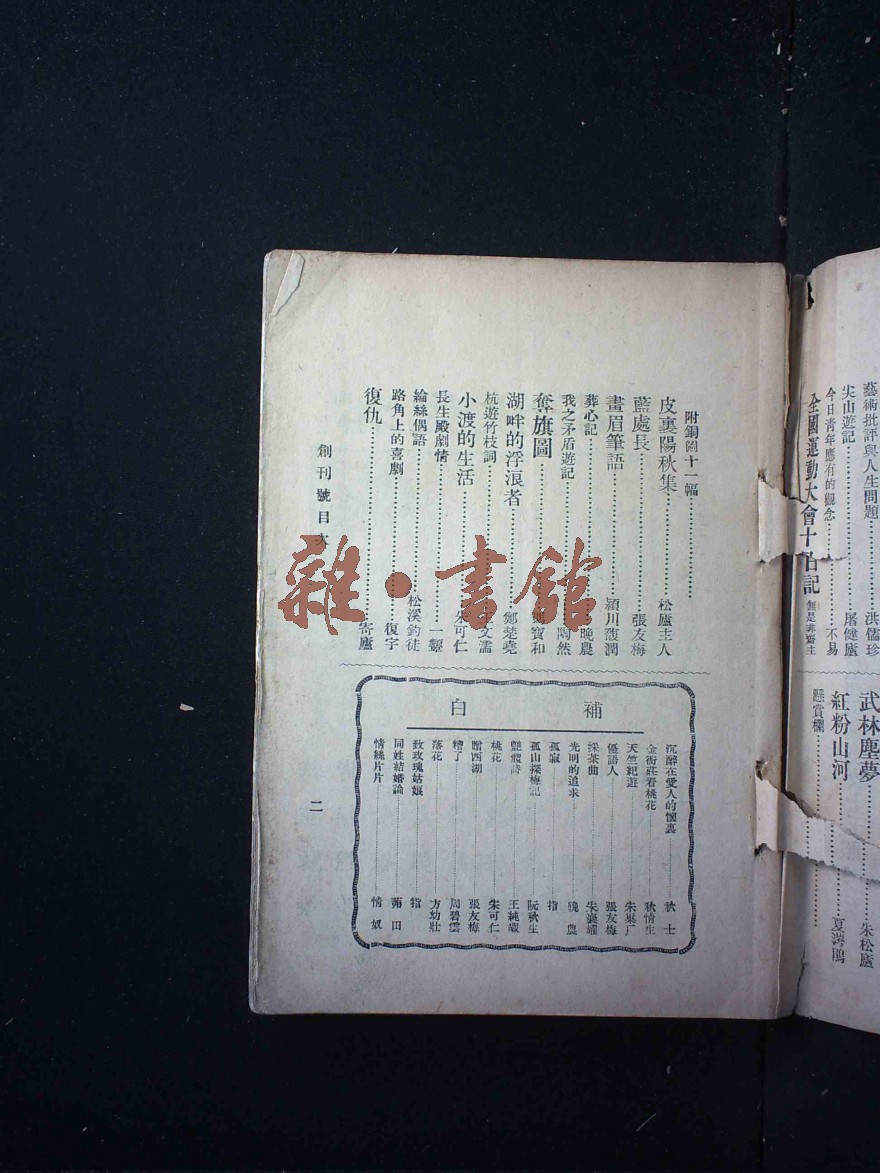 藝術批評與人生問題……洪儒珍
尖山遊記……屠健廬
今日青年應有的觀念……不易
全國運動大會十日記 無是非齋主
武林塵夢……朱松廬
紅粉山河……夏灣鵑
懸賞欄……
附銅圖十一幅……
皮裏陽秋集……松廬主人
藍處長……張友梅
畫眉筆語……潁川馥潤
葬心記……晚農
我之矛盾遊記……陶然
奪旗圖……寶和
湖畔的浮浪者……鄭楚堯
杭遊竹枝詞……文濡
小渡的生活……朱可仁
長生殿劇情……一顰
綸絲偶語……松溪釣徒
路角上的喜劇……復宇
復仇……寄廬
補白
沉醉在愛人的懷裏……秋士
金衙莊看桃花……秋情生
天竺紀遊……朱巢厂
優語人……張友梅
採茶曲……朱襄罐
光明的追求……晚農
孤寂……指
孤山探梅記……阮秋生
艷體詩……王純
桃花……朱可仁
贈西湖……張友梅
糟了……周碧雲
落花……方幼壯
致玫瑰姑娘……指
同姓結婚論……蘋田
情絲片片……情奴
創刊號目次
二
雜·書館